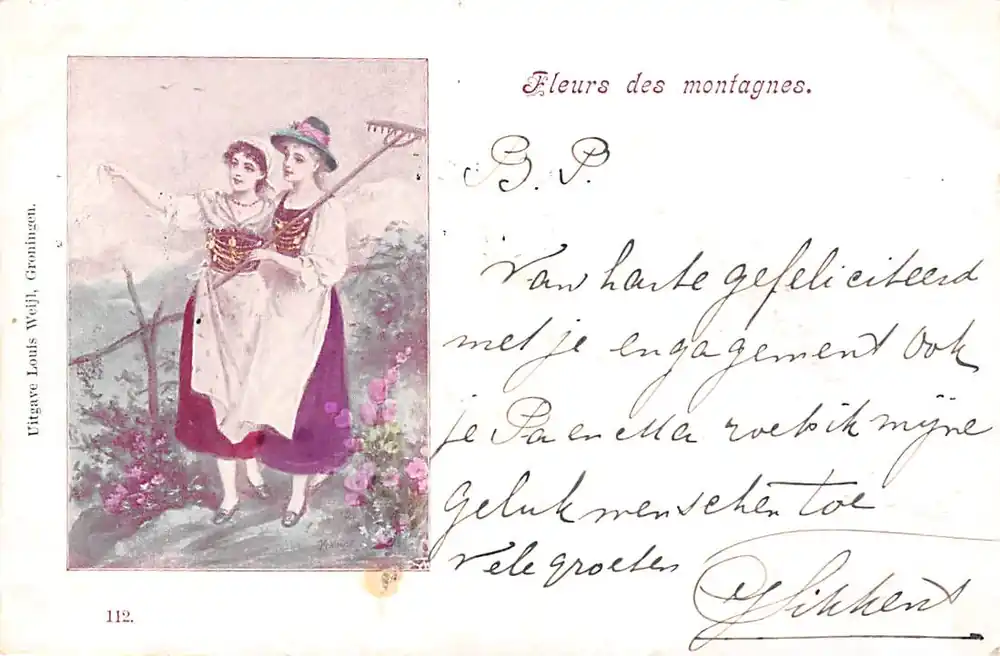 Fleurs des montagnes.
B. P.
Van harte gefeliciteerd
met je engagement Ook
je Pa en Ma roep ik mijne
geluk menschen toe
Vele groeten
Sikkens
Uitgave Louis Weijl, Groningen.
112.